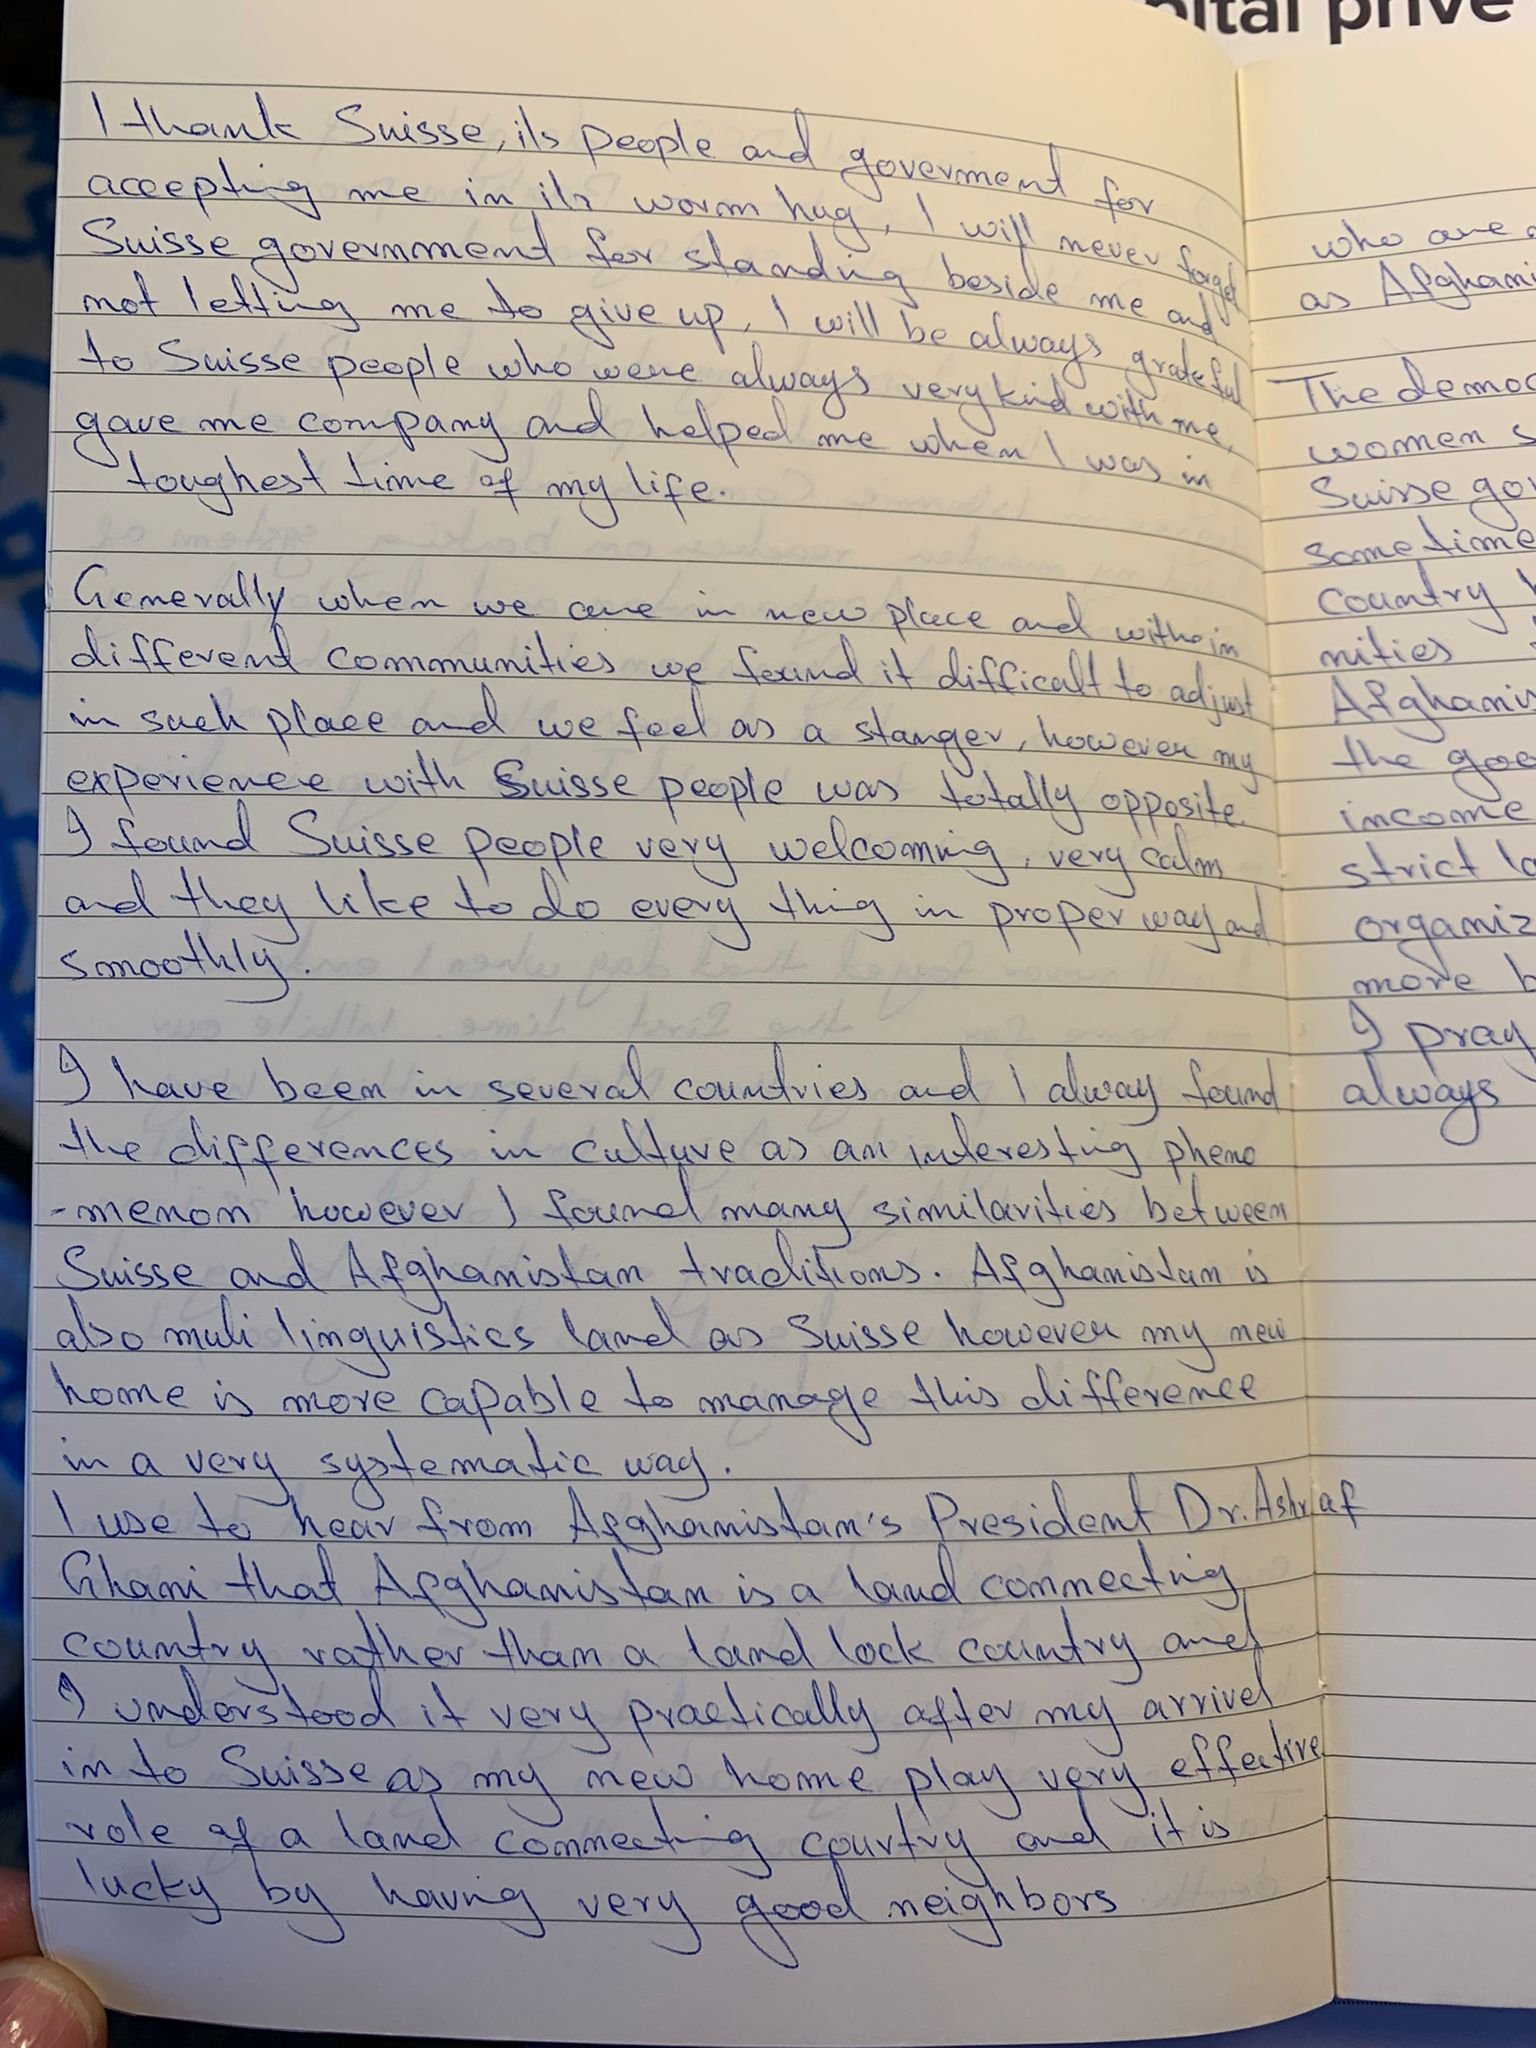 pital privé
I thank Suisse, its people and goverment for
accepting me in its worm hug, I will never forget
Suisse government for standing beside me and
not letting me to give up, I will be always grateful
to Suisse people who were always very kind with me,
gave me company and helped me when I was in
toughest time of my life.
Generally when we are in new place and withe in
different communities we found it difficult to adjust
in such place and we feel as a stanger, however my
experience with Suisse people was totally opposite.
I found Suisse people very welcoming, very calm
and they like to do every thing in proper way and
smoothly.
I have been in several countries and I alway found
the differences in culture as an interesting pheno
-menon however I found many similarities between
Suisse and Afghanistan traditions. Afghanistan is
also muli linguistics land as Suisse however my new
home is more capable to manage this difference
in a very systematic way.
I use to hear from Afghanistan's President Dr. Ashraf
Ghani that Afghanistan is a land connecting
country rather than a land lock country and
I understood it very practically after my arrivel
in to Suisse as my new home play very effective
role of a land connecting country and it is
lucky by having very good neighbors
who are
as Afghani
The democ
women s
Suisse gov
same time
country
nities
Afghanis
the goo
income
strict la
organiz
more b
I pray
always